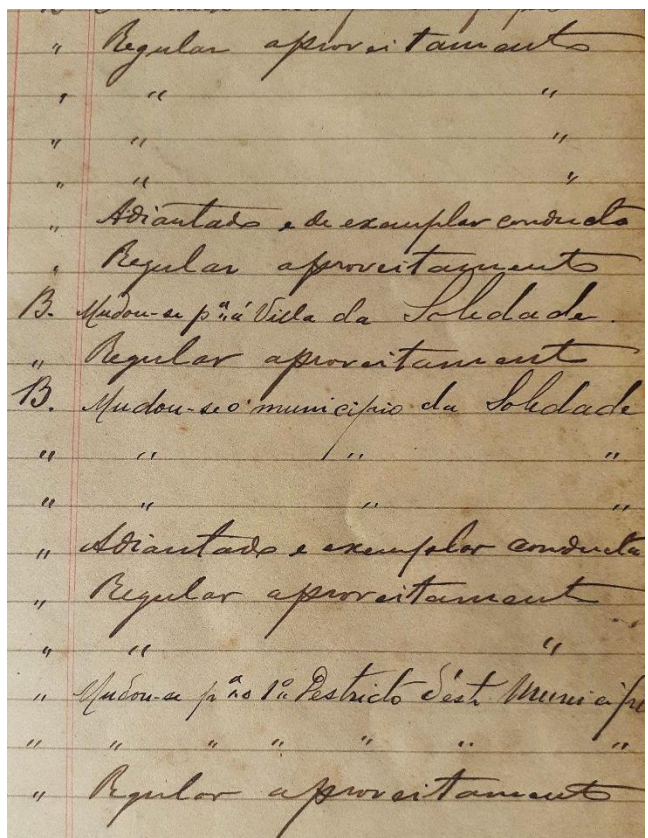 " Regular aproveitamento
" " "
" " "
" " "
" Adiantado e de exemplar conducta
" Regular aproveitamento
B. Mudou-se pª a Villa da Soledade.
" Regular aproveitament
B. Mudou-se o municipio da Soledade
" " " "
" " " "
" Adiantado e exemplar conducta
" Regular aproveitament
" " "
" Mudou-se pª o 1º Destricto d'est Municip
" " " " " " "
" Regular aproveitament